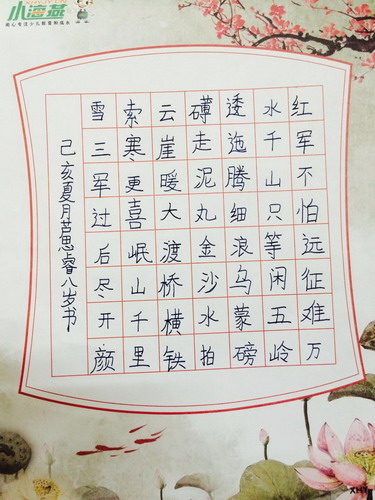 小海燕
红军不怕远征难万
水千山只等闲五岭
逶迤腾细浪乌蒙磅
礴走泥丸金沙水拍
云崖暖大渡桥横铁
索寒更喜岷山千里
雪三军过后尽开颜
己亥夏月芦思睿八岁书
XHY